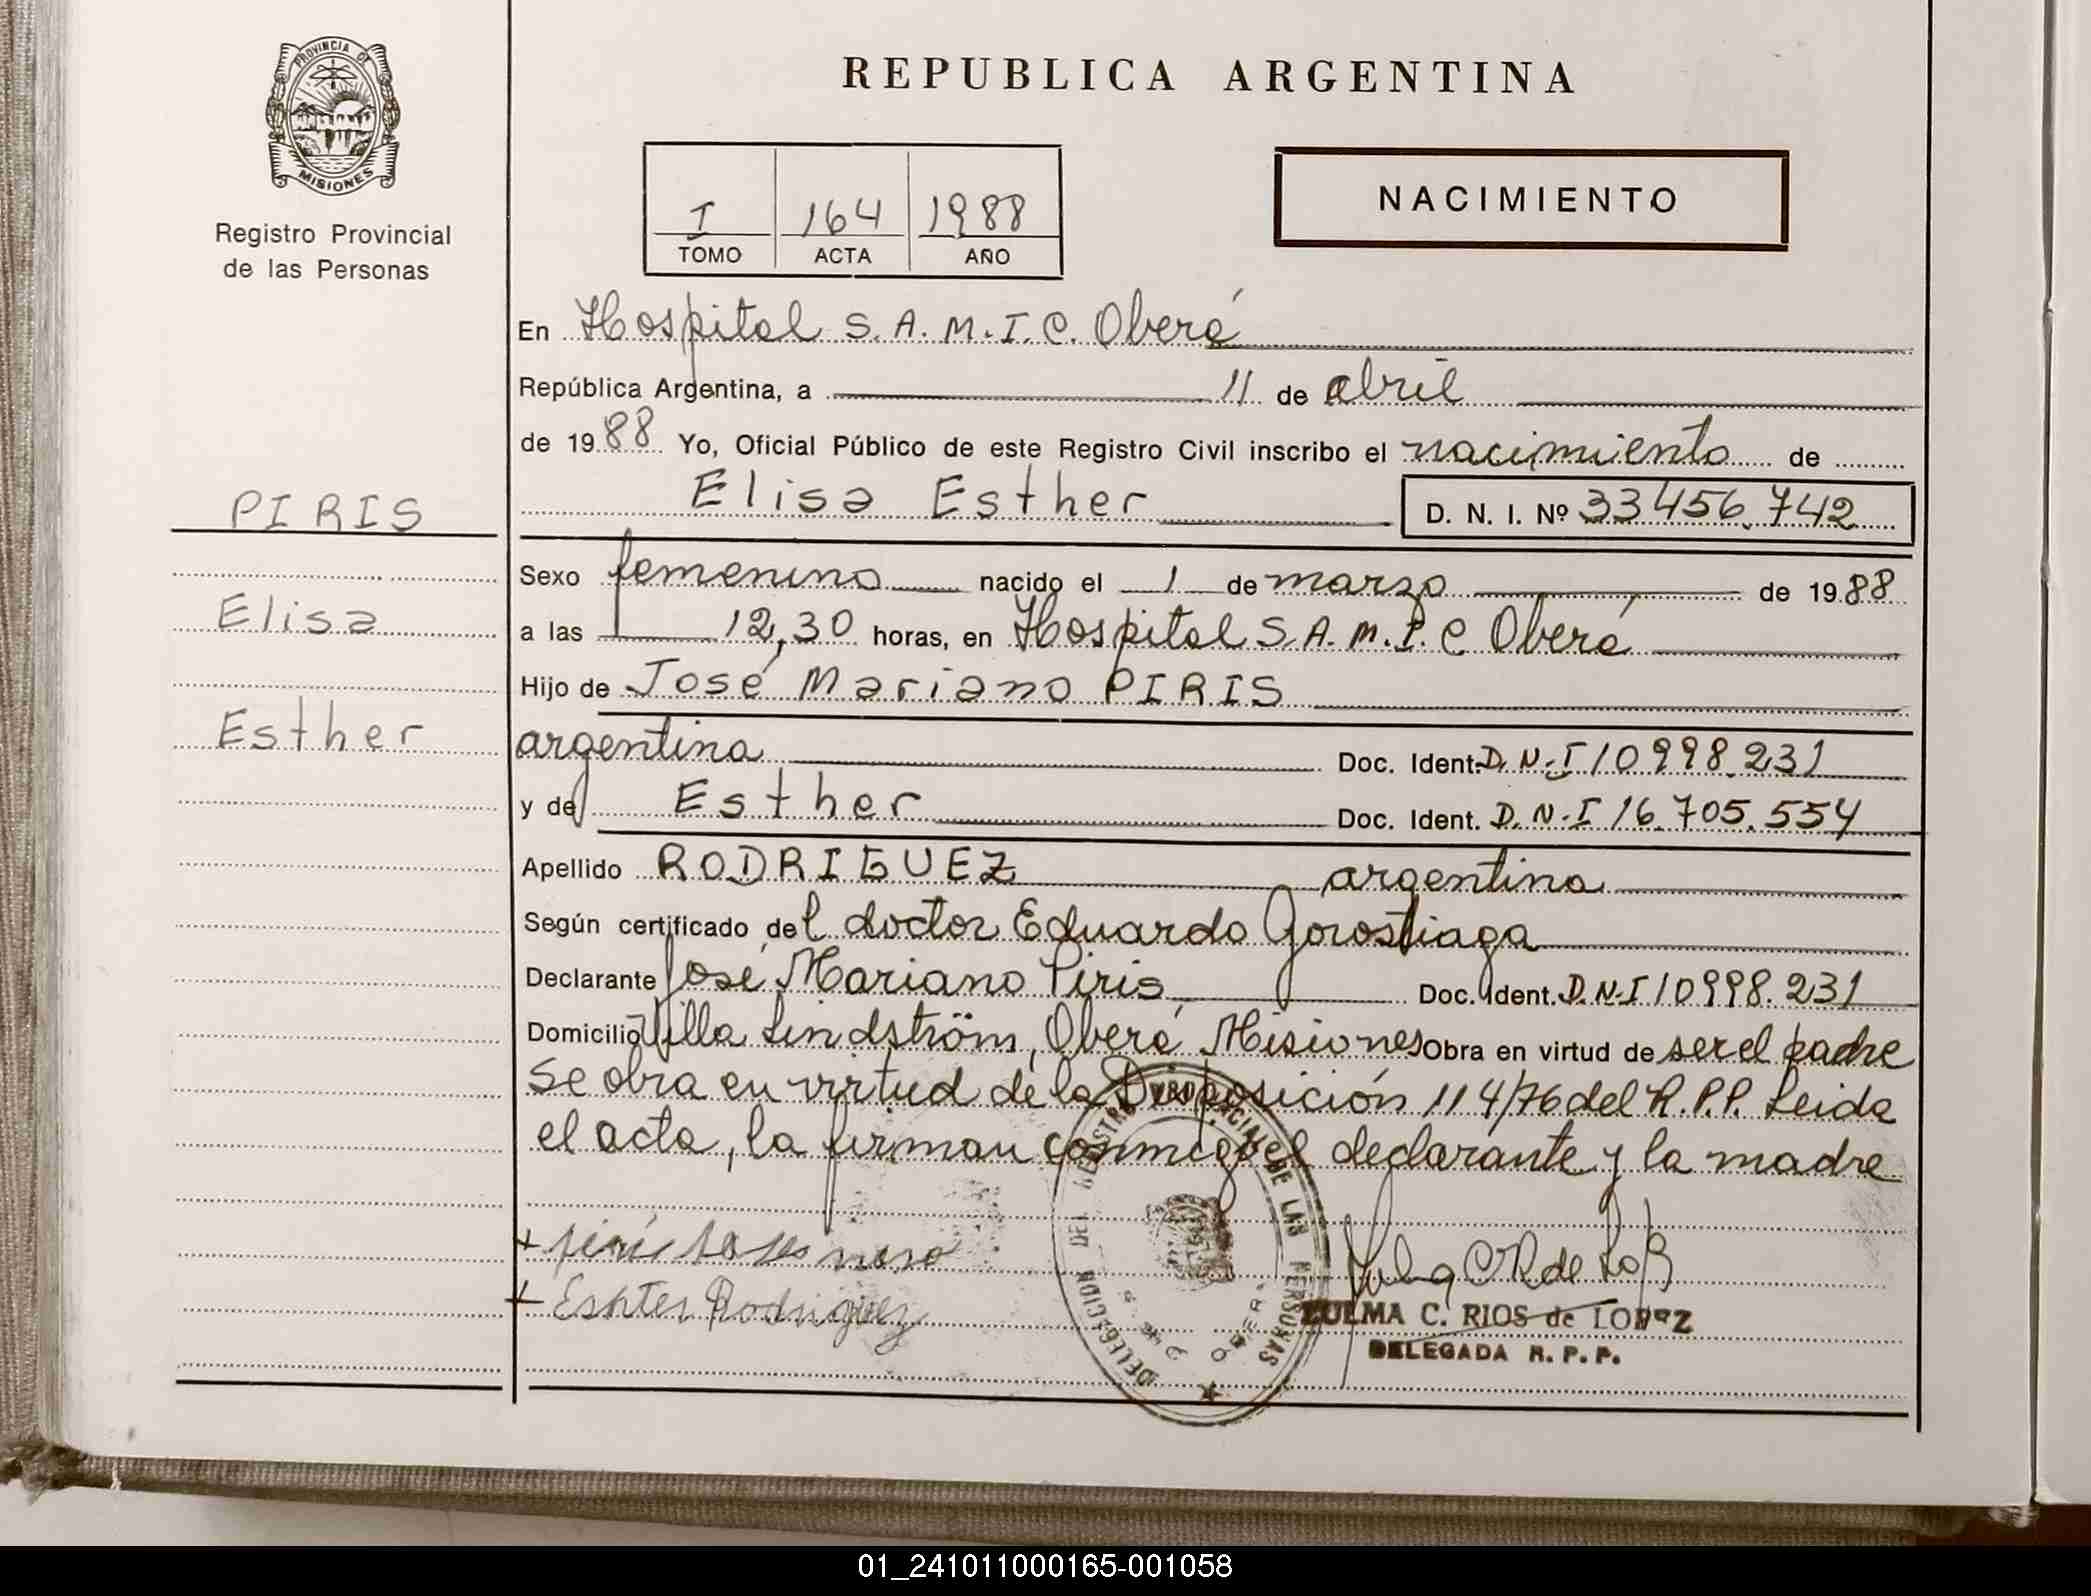 PROVINCIA DE
MISIONES
Registro Provincial
de las Personas
REPUBLICA ARGENTINA
I 164 1988
TOMO ACTA AÑO
NACIMIENTO
En Hospital S.A.M.I.C. Oberá
República Argentina, a 11 de abril
de 1988 Yo, Oficial Público de este Registro Civil inscribo el nacimiento de
Elisa Esther D. N. I. Nº 33456.742
PIRIS
Elisa
Esther
Sexo femenino nacido el 1 de marzo de 1988
a las 12,30 horas, en Hospital S.A.M.I.C Oberá
Hijo de José Mariano PIRIS
argentina Doc. Ident. D.N.I 10998.231
y de Esther Doc. Ident. D.N.I 16.705.554
Apellido RODRIGUEZ argentina
Según certificado del doctor Eduardo Gorostiaga
Declarante José Mariano Piris Doc. Ident. D.N.I 10998.231
Domicilio Villa Lindström, Oberá Misiones Obra en virtud de ser el padre
Se obra en virtud de la Disposición 114/76 del R.P.P. Leida
el acta, la firman conmigo el declarante y la madre
DELEGACION DEL REGISTRO PROVINCIAL DE LAS PERSONAS
+ Eshter Rodriguez
ZULMA C. RIOS de LOPEZ
DELEGADA R. P. P.
01_241011000165-001058